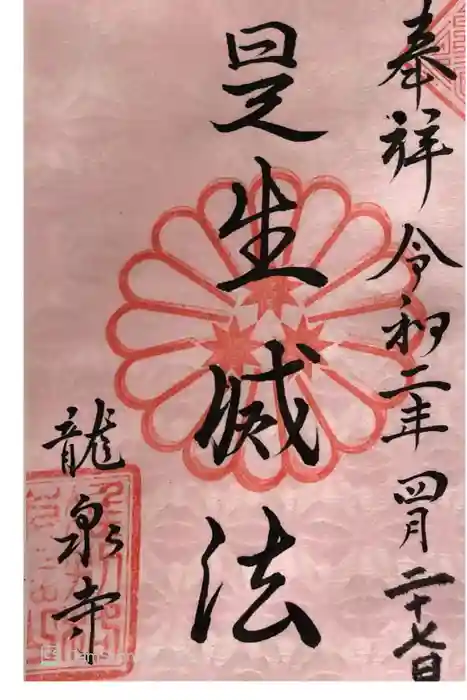 奉祥 令和二年 四月 二十七日
是生滅法
龍泉寺